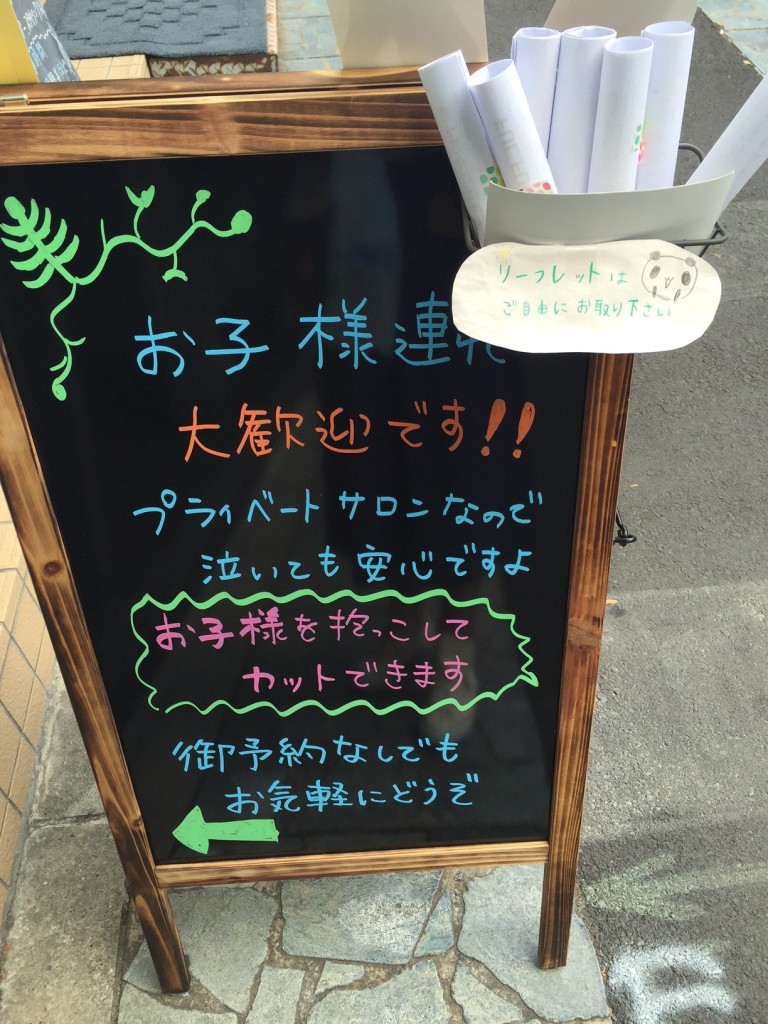 リーフレットは
ご自由にお取り下さい
お子様連れ
大歓迎です!!
プライベートサロンなので
泣いても安心ですよ
お子様を抱っこして
カットできます
御予約なしでも
お気軽にどうぞ